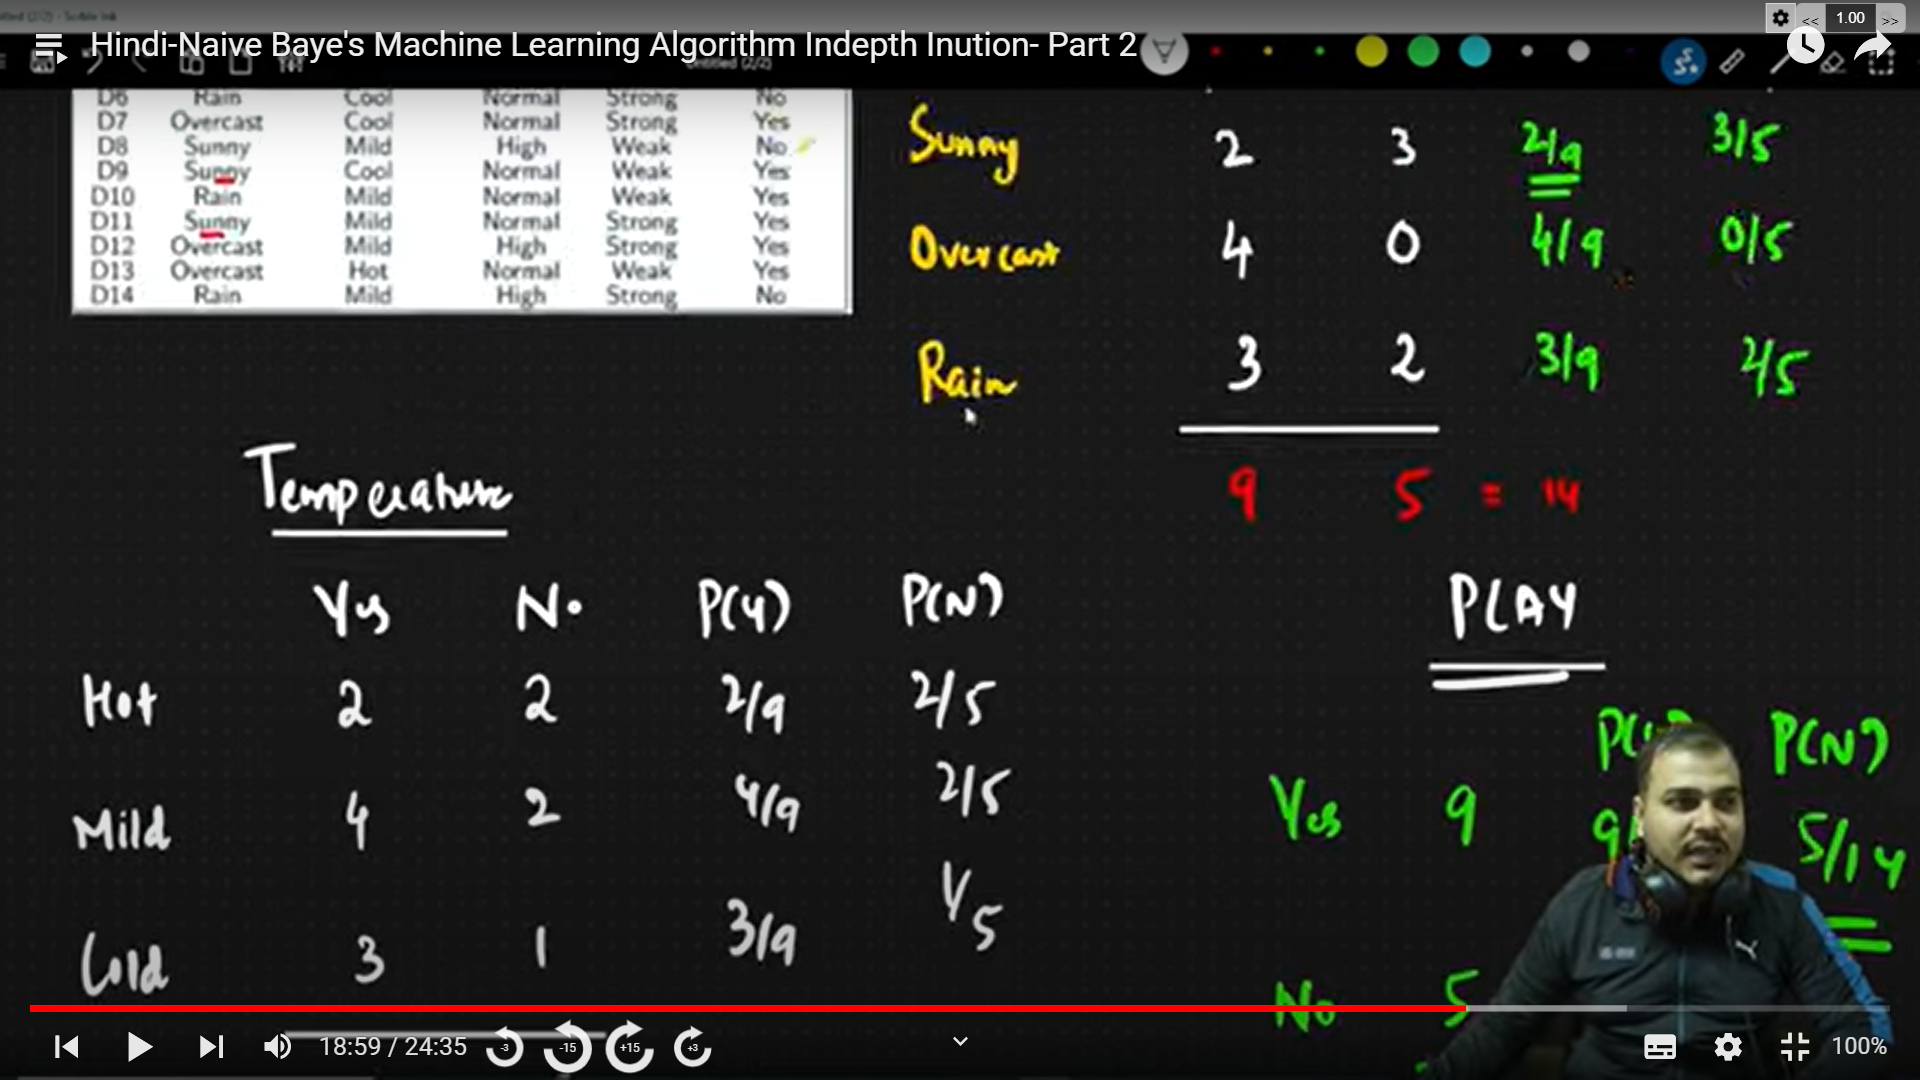 Untitled (2/2) - Scrble Ink
<< 1.00 >>
Hindi-Naive Baye's Machine Learning Algorithm Indepth Inution- Part 2
Untitled (2/2)
D6 Rain Cool Normal Strong No
D7 Overcast Cool Normal Strong Yes
D8 Sunny Mild High Weak No
D9 Sunny Cool Normal Weak Yes
D10 Rain Mild Normal Weak Yes
D11 Sunny Mild Normal Strong Yes
D12 Overcast Mild High Strong Yes
D13 Overcast Hot Normal Weak Yes
D14 Rain Mild High Strong No
Sunny 2 3 2/9 3/5
Overcast 4 0 4/9 0/5
Rain 3 2 3/9 2/5
9 5 = 14
Temperature
Yes No P(Y) P(N)
Hot 2 2 2/9 2/5
Mild 4 2 4/9 2/5
Cold 3 1 3/9 1/5
PLAY
P(N)
Yes 9 9/ 5/14
No 5
18:59 / 24:35 -3 -15 +15 +3 100%